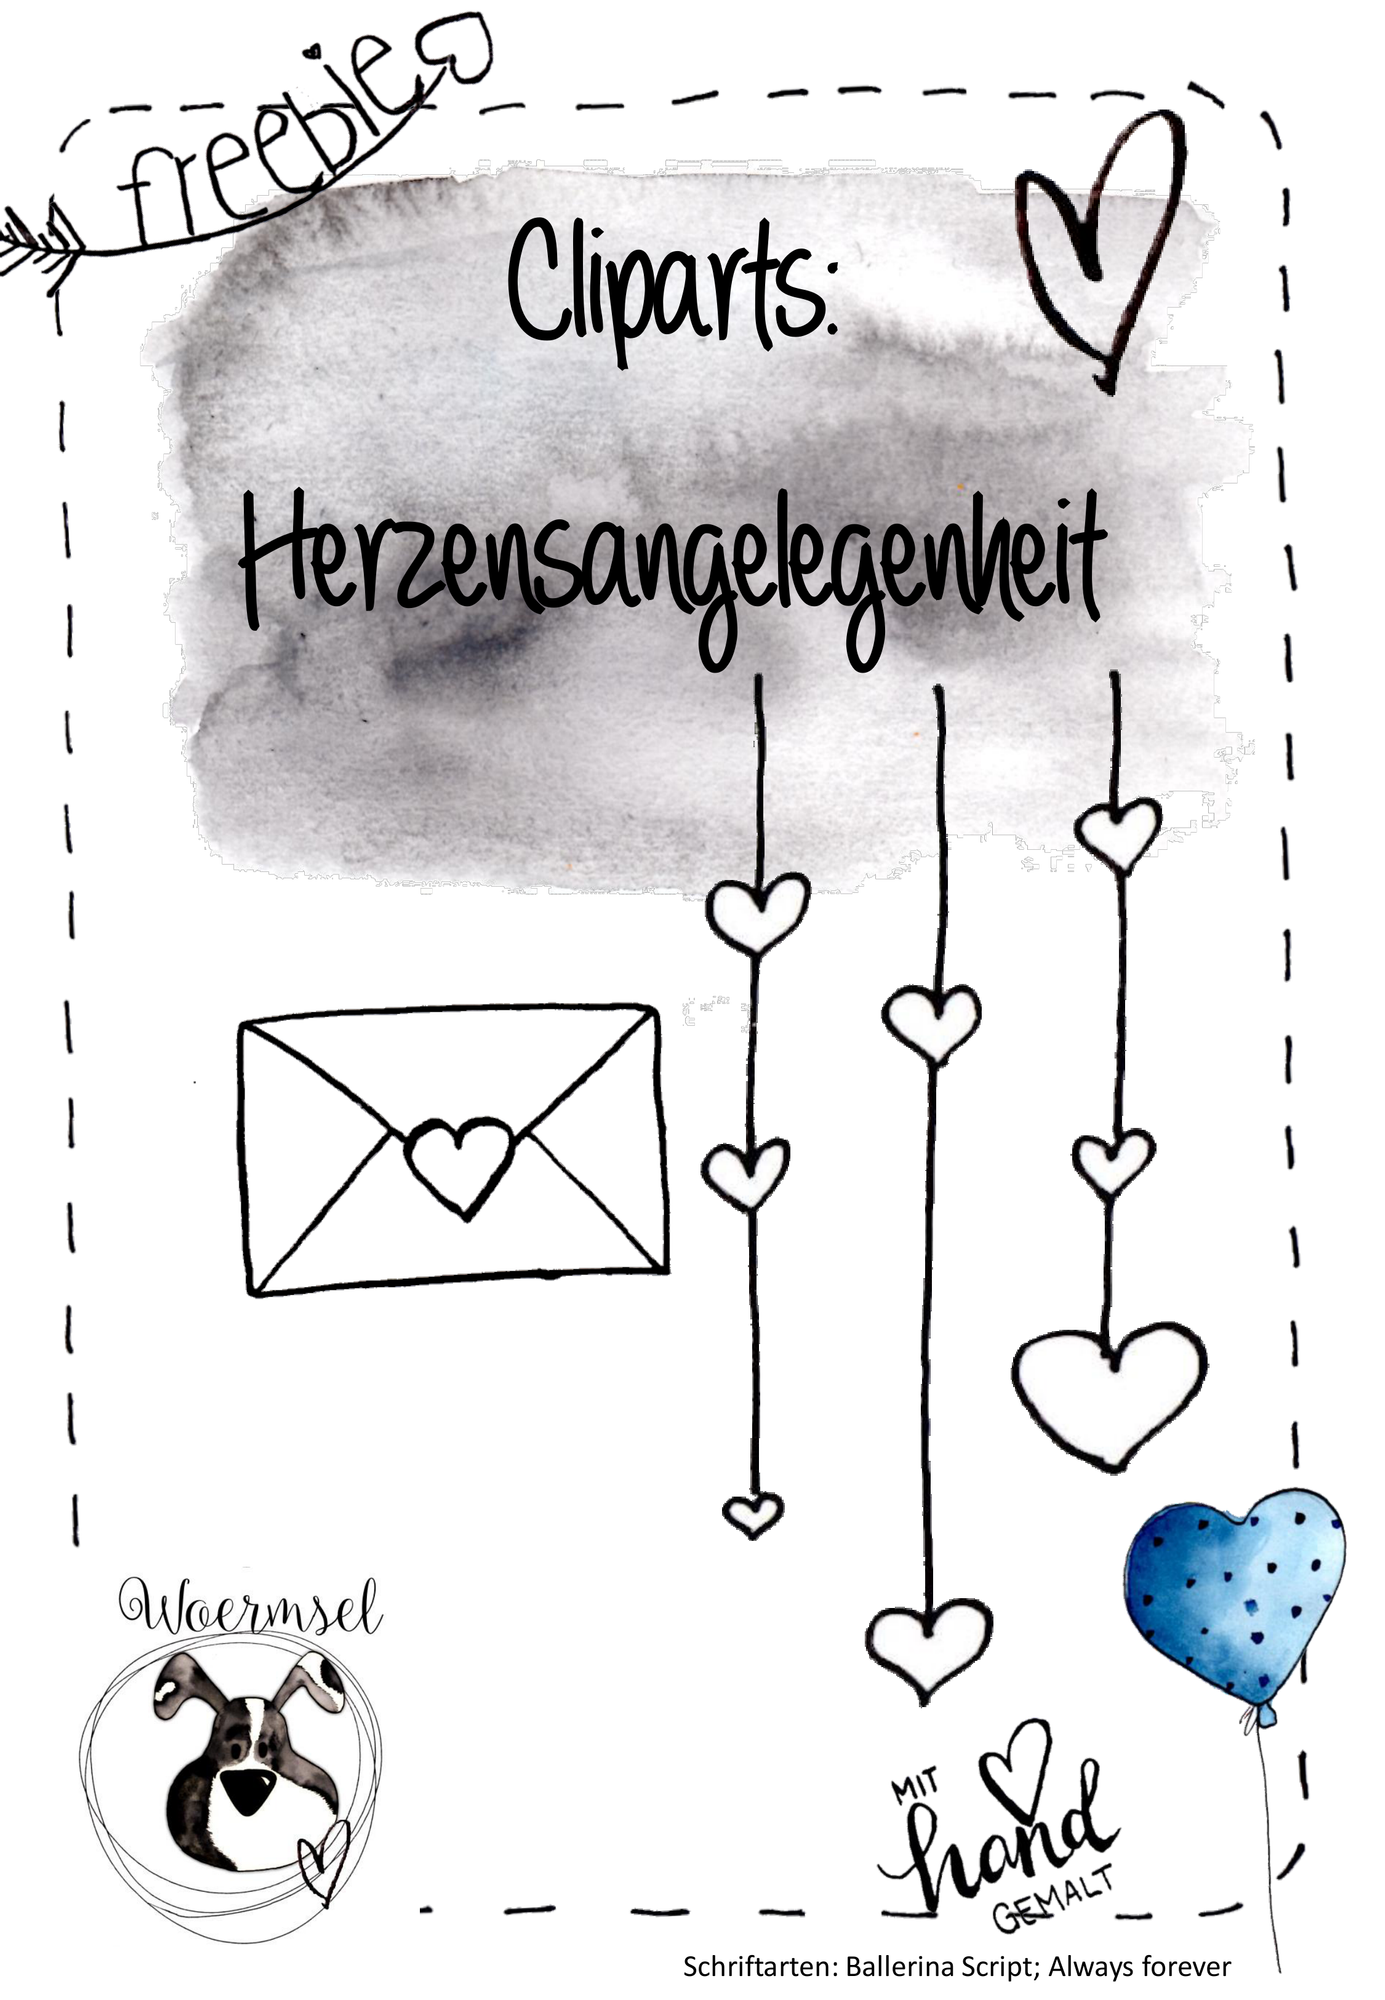 freebie
Cliparts:
Herzensangelegenheit
Woermsel
MIT
hand
GEMALT
Schriftarten: Ballerina Script; Always forever